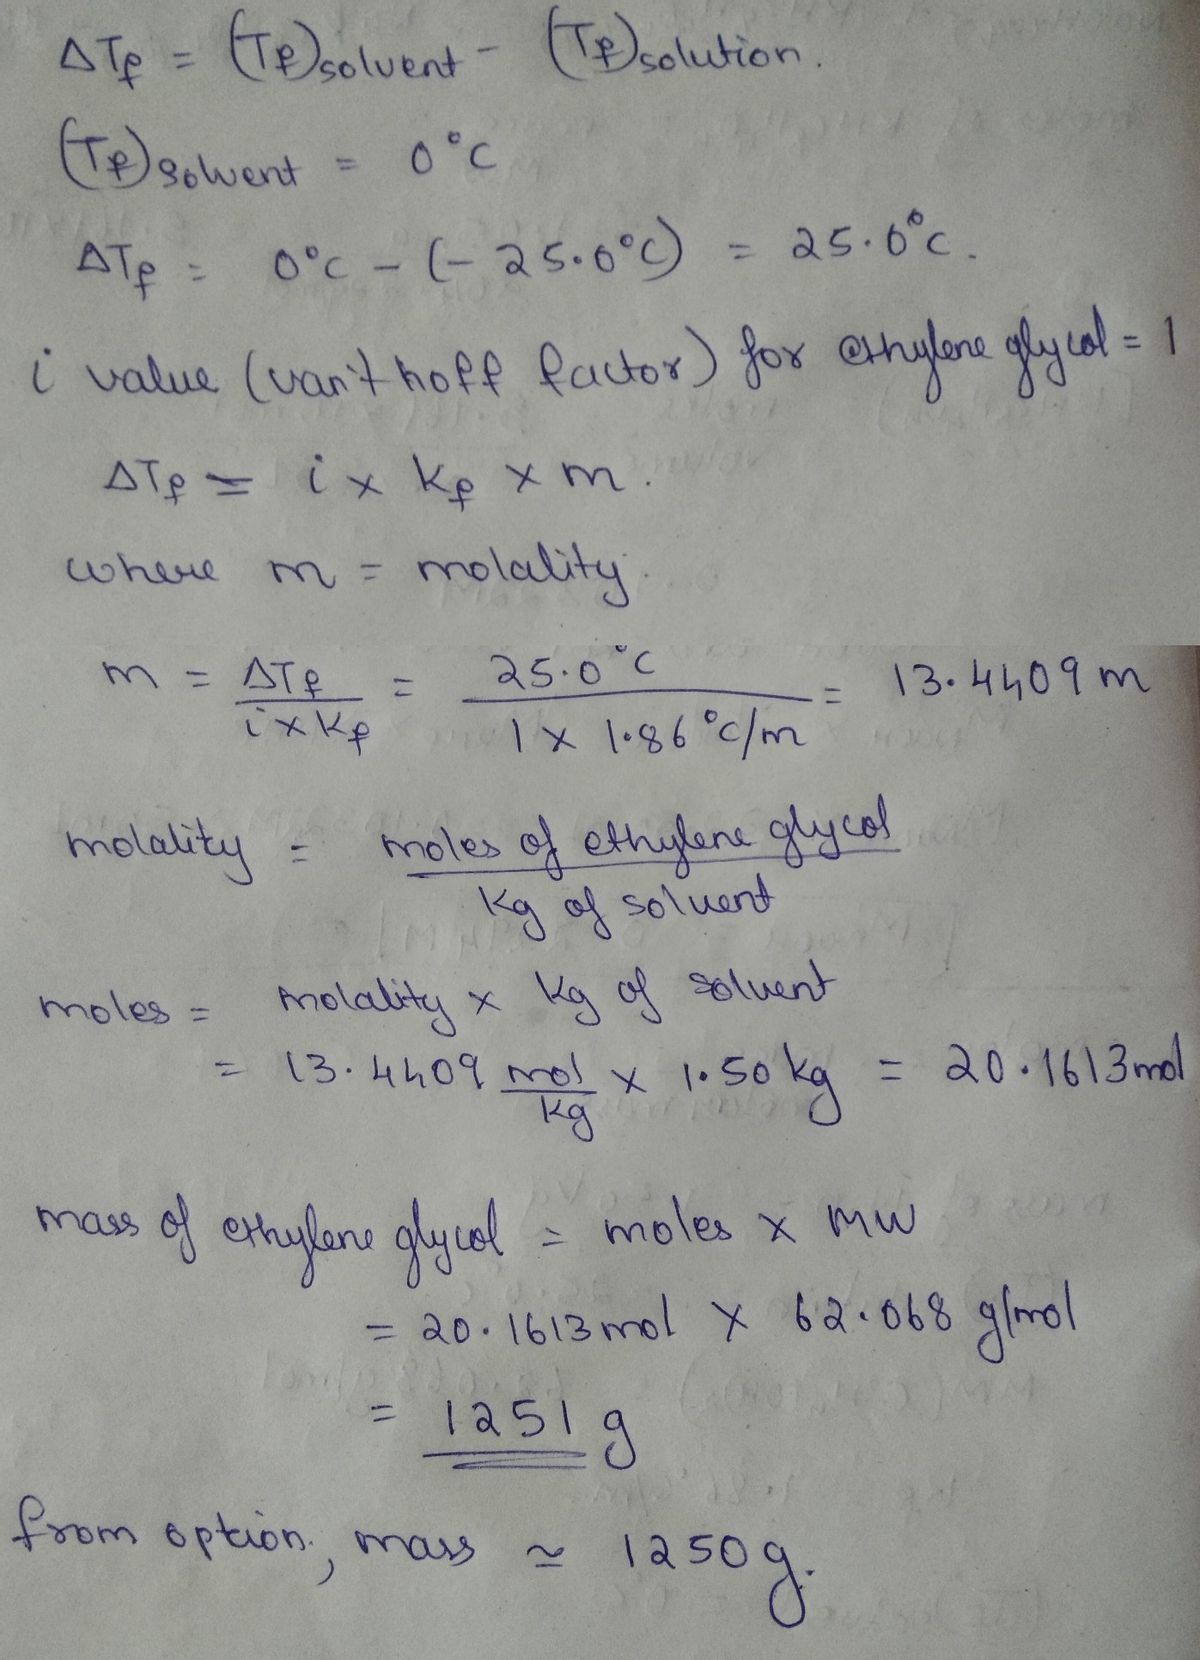 ΔTf = (Tf)solvent - (Tf)solution.
(Tf)solvent = 0°C
ΔTf = 0°C - (-25.0°C) = 25.0°C.
i value (van't hoff factor) for ethylene glycol = 1
ΔTf = i x Kf x m.
where m = molality.
m = ΔTf / i x Kf = 25.0°C / 1 x 1.86°C/m = 13.4409 m
molality = moles of ethylene glycol / Kg of solvent
moles = molality x Kg of solvent
= 13.4409 mol/Kg x 1.50 kg = 20.1613 mol
mass of ethylene glycol = moles x MW
= 20.1613 mol x 62.068 g/mol
= 1251 g
from option, mass ≃ 1250 g.